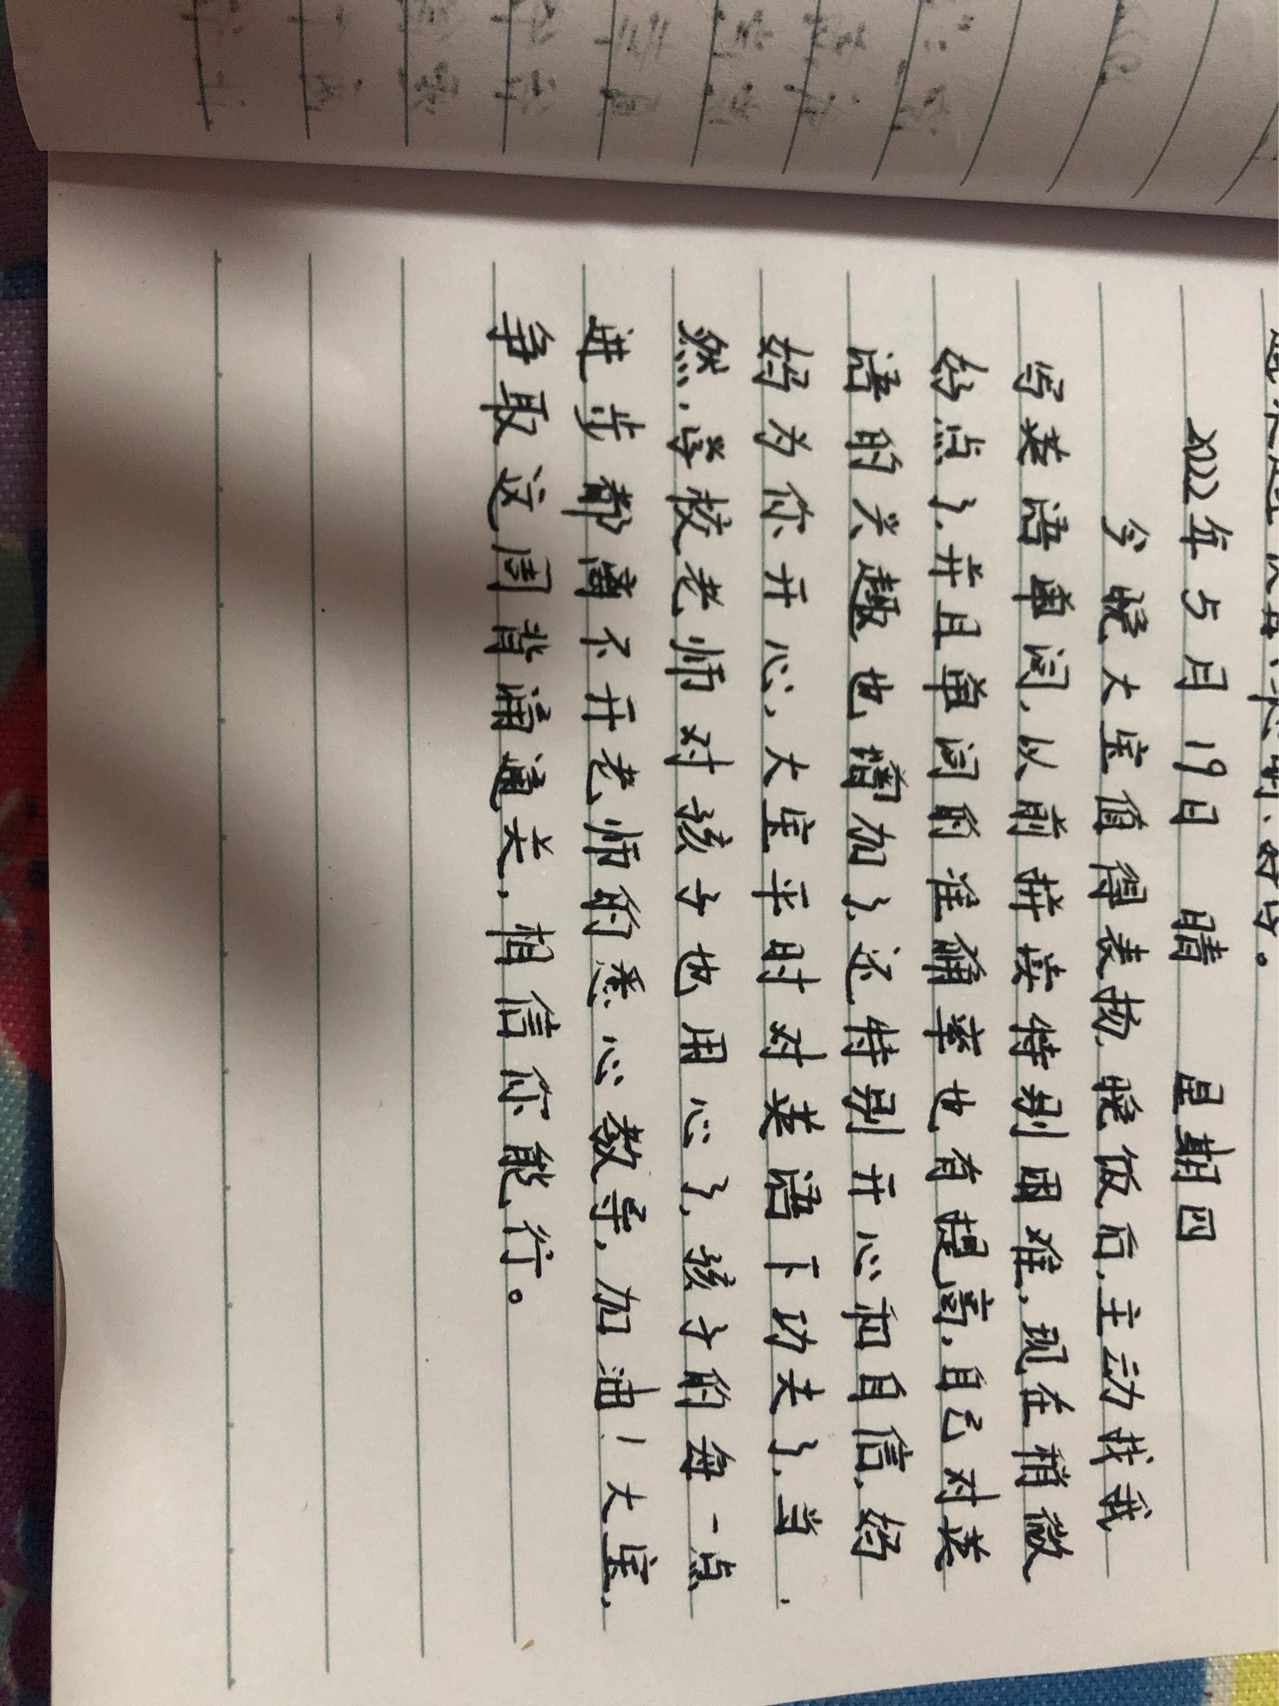 2022年5月19日 晴 星期四
今晚大宝值得表扬,晚饭后,主动找我
写英语单词,以前拼读特别困难,现在稍微
好点了,并且单词的准确率也有提高,自己对英
语的兴趣也增加了,还特别开心和自信,妈
妈为你开心,大宝平时对英语下功夫了,当
然,学校老师对孩子也用心了,孩子的每一点
进步都离不开老师的悉心教导,加油!大宝,
争取这周背诵通关,相信你能行。